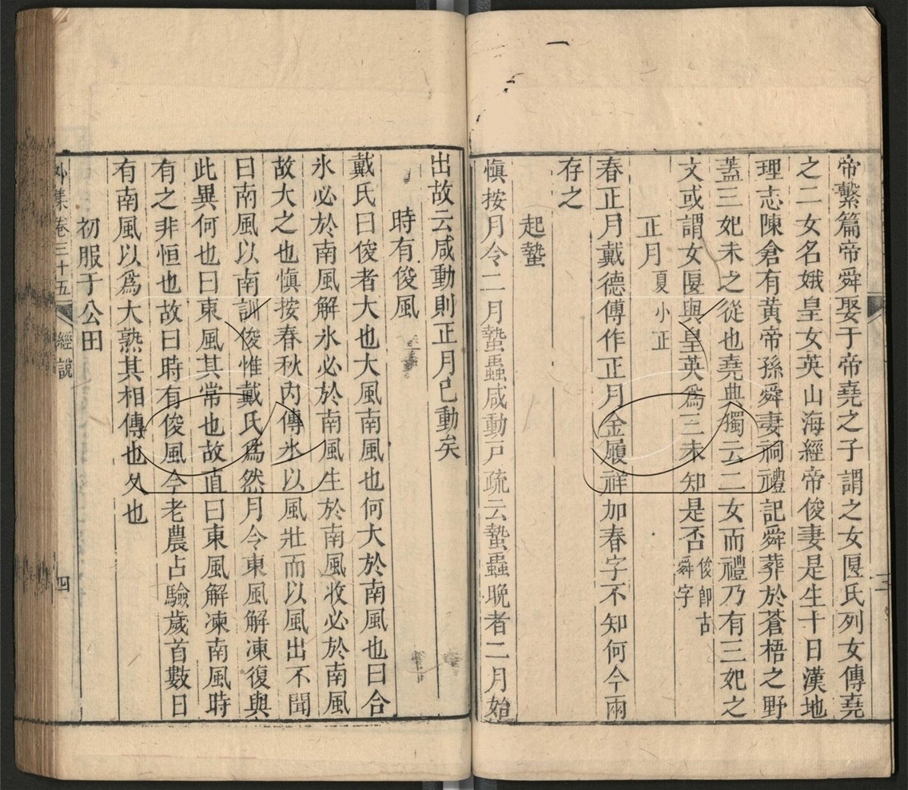 帝繫篇帝舜娶于帝堯之子謂之女匽氏列女傳堯
之二女名娥皇女英山海經帝俊妻是生十日漢地
理志陳倉有黃帝孫舜妻祠禮記舜葬於蒼梧之野
蓋三妃未之從也堯典獨云二女而禮乃有三妃之
文或謂女匽與皇英爲三未知是否俊卽古舜字
正月夏小正
春正月戴德傳作正月金履祥加春字不知何今兩
存之
起蟄
愼按月令二月蟄蟲咸動戸疏云蟄蟲晚者二月始
出故云咸動則正月已動矣
時有俊風
戴氏曰俊者大也大風南風也何大於南風也曰合
氷必於南風解氷必於南風生於南風收必於南風
故大之也愼按春秋內傳氷以風壯而以風出不聞
曰南風以南訓俊惟戴氏爲然月令東風解凍復與
此異何也曰東風其常也故直曰東風解凍南風時
有之非恒也故曰時有俊風今老農占驗歲首數日
有南風以爲大熟其相傳也夂也
初服于公田
外集卷三十五
經說
四